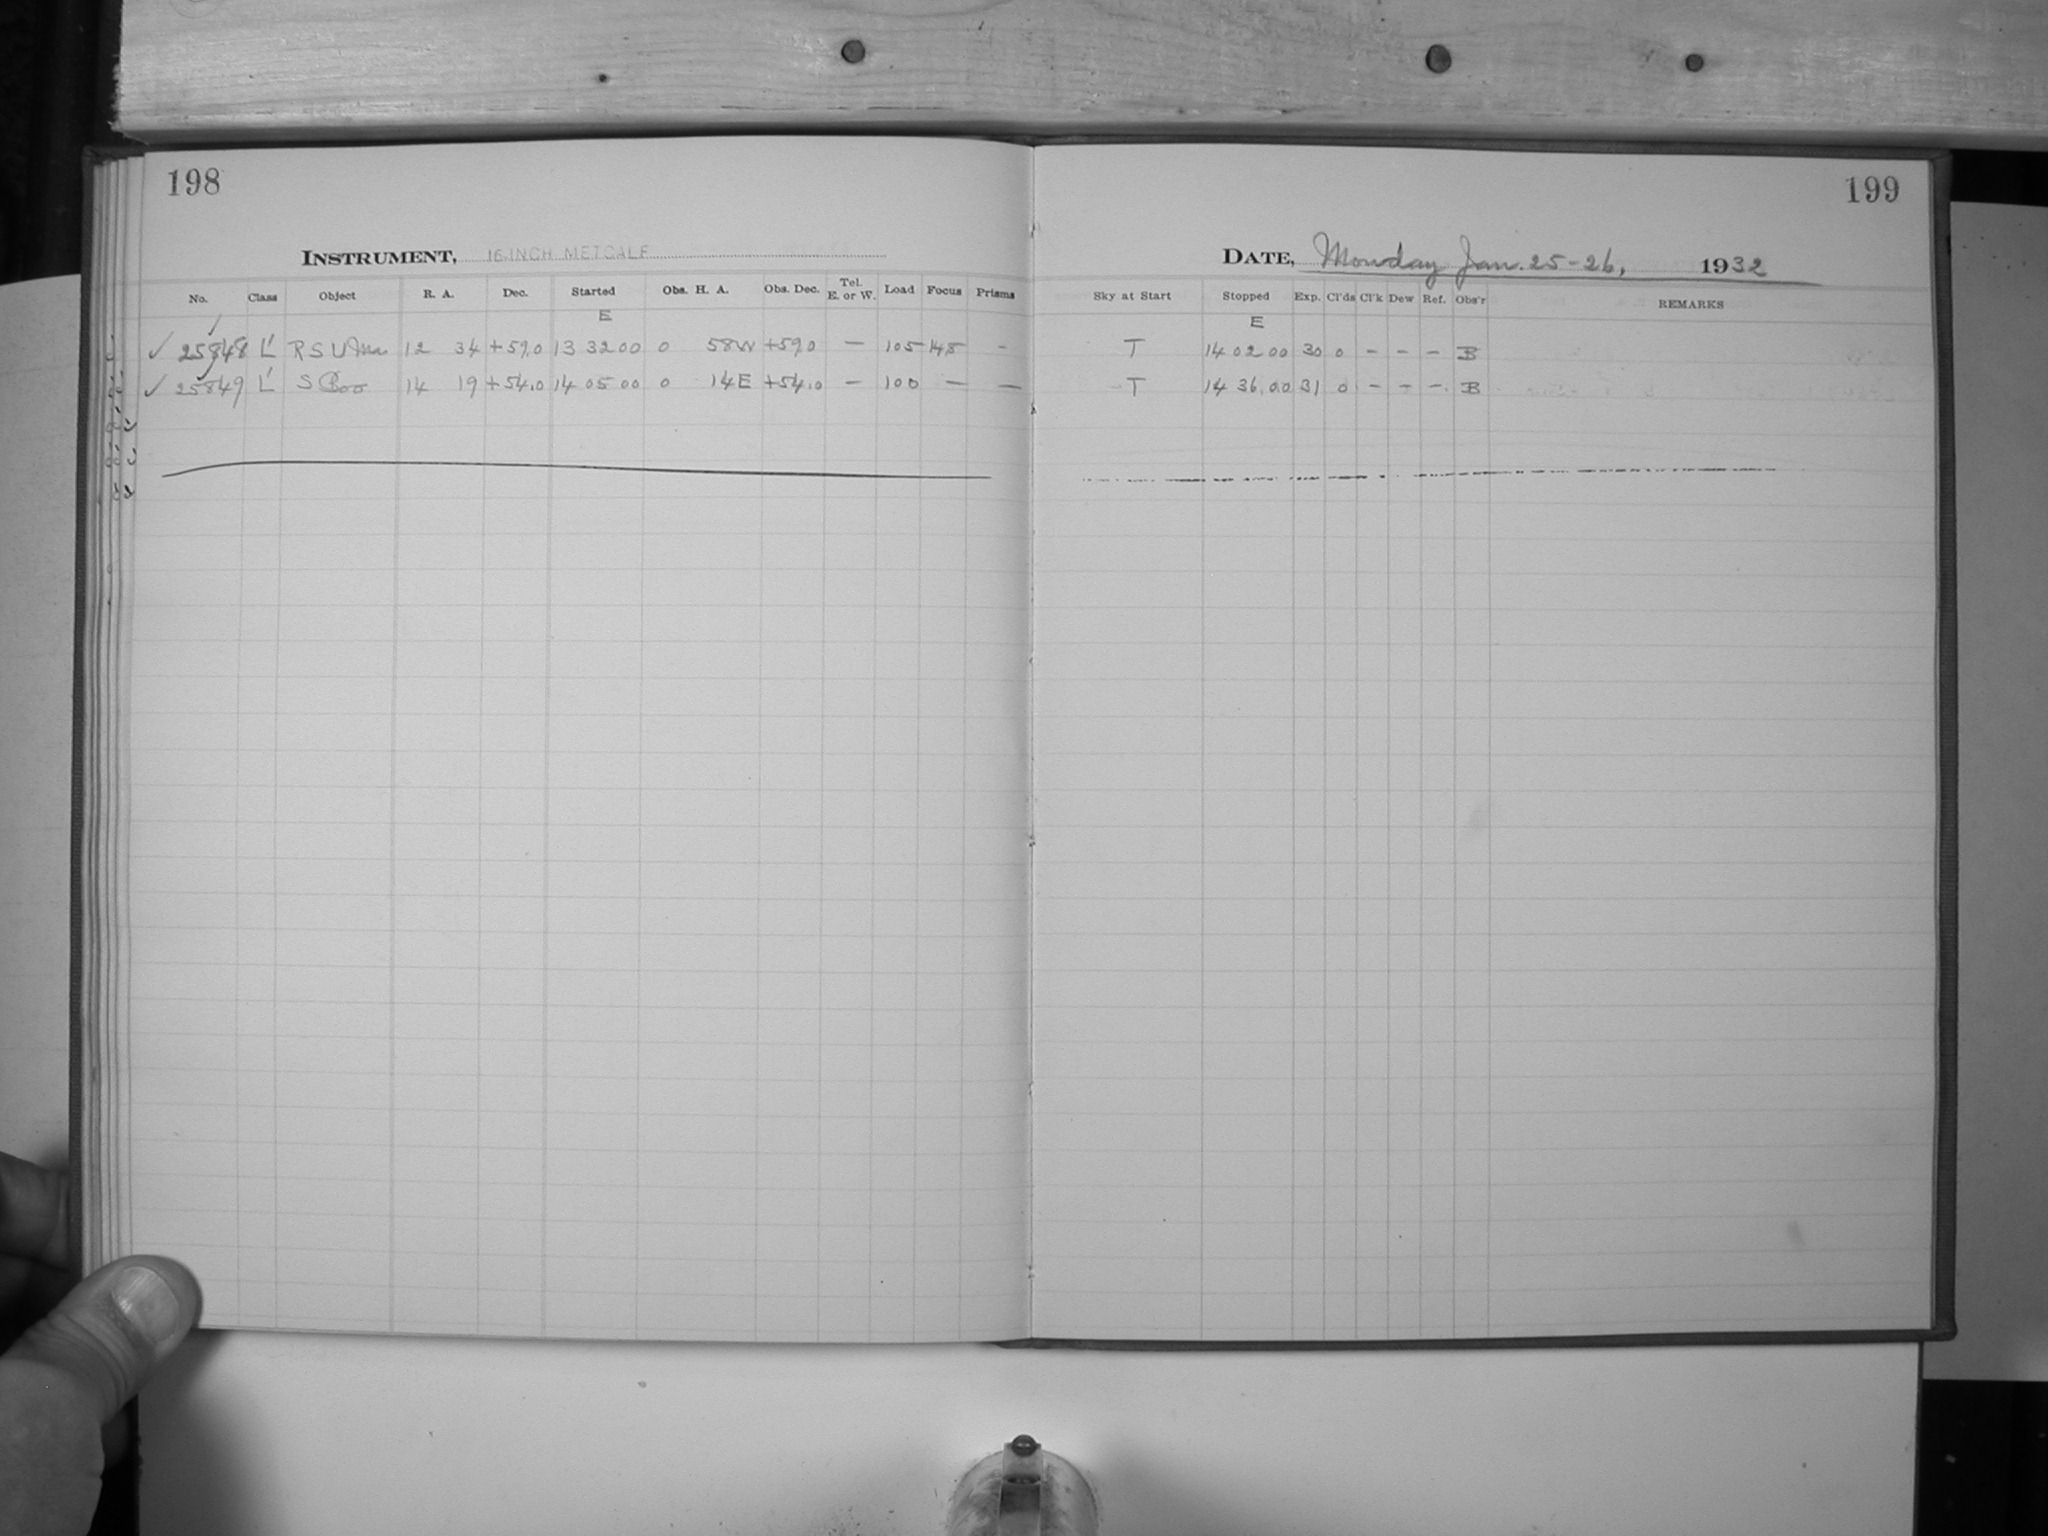 198
INSTRUMENT, 16-INCH METCALF
No. Class Object R. A. Dec. Started Obs. H. A. Obs. Dec. Tel. E. or W. Load Focus Prisms
E
✓ 25848 L R S U Ma 12 34 +59.0 13 32 00 0 58W +59.0 — 105 148 -
✓ 25849 L S Boo 14 19 +54.0 14 05 00 0 14E +54.0 — 100 — —
199
DATE, Monday Jan. 25-26, 1932
Sky at Start Stopped Exp. Cl'ds Cl'k Dew Ref. Obs'r REMARKS
E
T 14 02 00 30 0 - - - B
T 14 36.00 31 0 - - - B